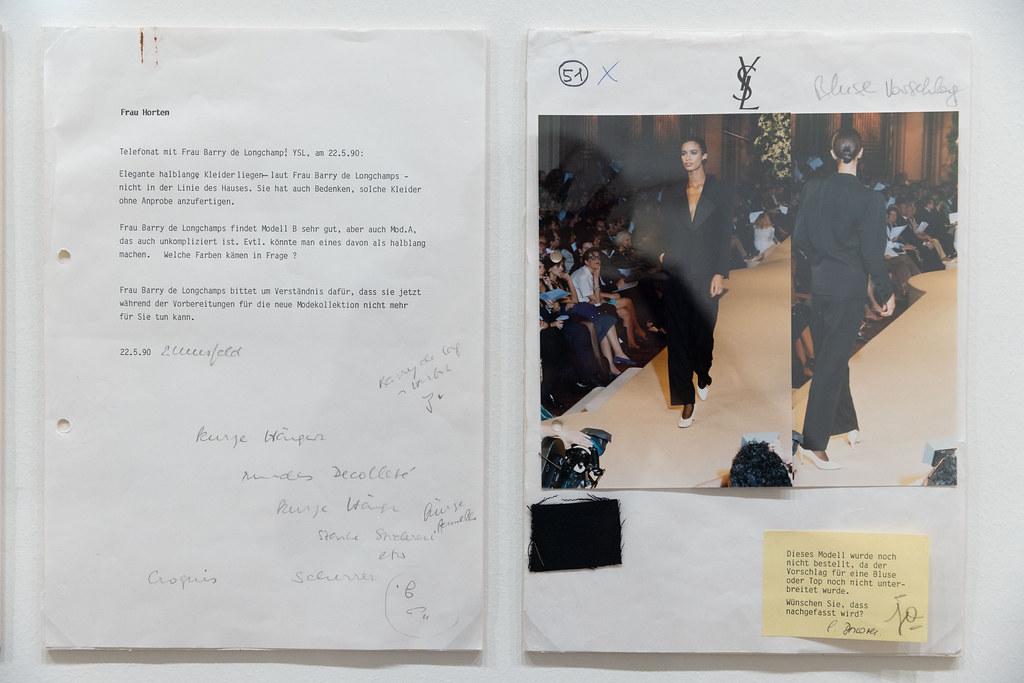 Frau Horten
Telefonat mit Frau Barry de Longchamp! YSL, am 22.5.90:
Elegante halblange Kleider liegen — laut Frau Barry de Longchamps -
nicht in der Linie des Hauses. Sie hat auch Bedenken, solche Kleider
ohne Anprobe anzufertigen.
Frau Barry de Longchamps findet Modell B sehr gut, aber auch Mod.A,
das auch unkompliziert ist. Evtl. könnte man eines davon als halblang
machen. Welche Farben kämen in Frage ?
Frau Barry de Longchamps bittet um Verständnis dafür, dass sie jetzt
während der Vorbereitungen für die neue Modekollektion nicht mehr
für Sie tun kann.
22.5.90
Barry de
kurze Hänger
rundes Decolleté
kurze Hänger kurze
etw
Croquis Scherrer
51 X
YSL
Bluse Vorschlag
Dieses Modell wurde noch
nicht bestellt, da der
Vorschlag für eine Bluse
oder Top noch nicht unter-
breitet wurde.
Wünschen Sie, dass
nachgefasst wird?
ja